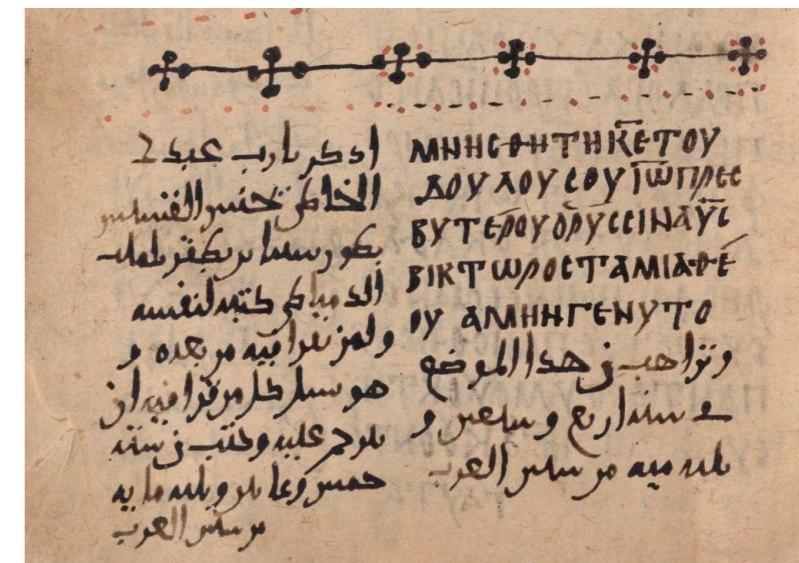 ΜΝΗCΘΗΤΗ Κ̅Ε̅ ΤΟΥ
ΔΟΥΛΟΥ CΟΥ Ι̅Ω̅ ΠΡΕC
ΒΥΤΕΡΟΥ
ΒΙΚΤΩΡΟC ΤΑΜΙΑΘΕ
ΟΥ ΑΜΗΝ ΓΕΝΥΤΟ
في هدا الموضع
في سنه اربع وسبعين و
ثلثميه من سنين العرب
ادكر يارب عبدك
الخاطى يحنس القسيس
بن بقطر
الدمياطى كتبه لنفسه
ولمن يقرا فيه من بعده و
هو يسل كل من قرا فيه ان
يترحم عليه وكتب في سنه
خمس وثمانين وثلثمايه
من سنين العرب